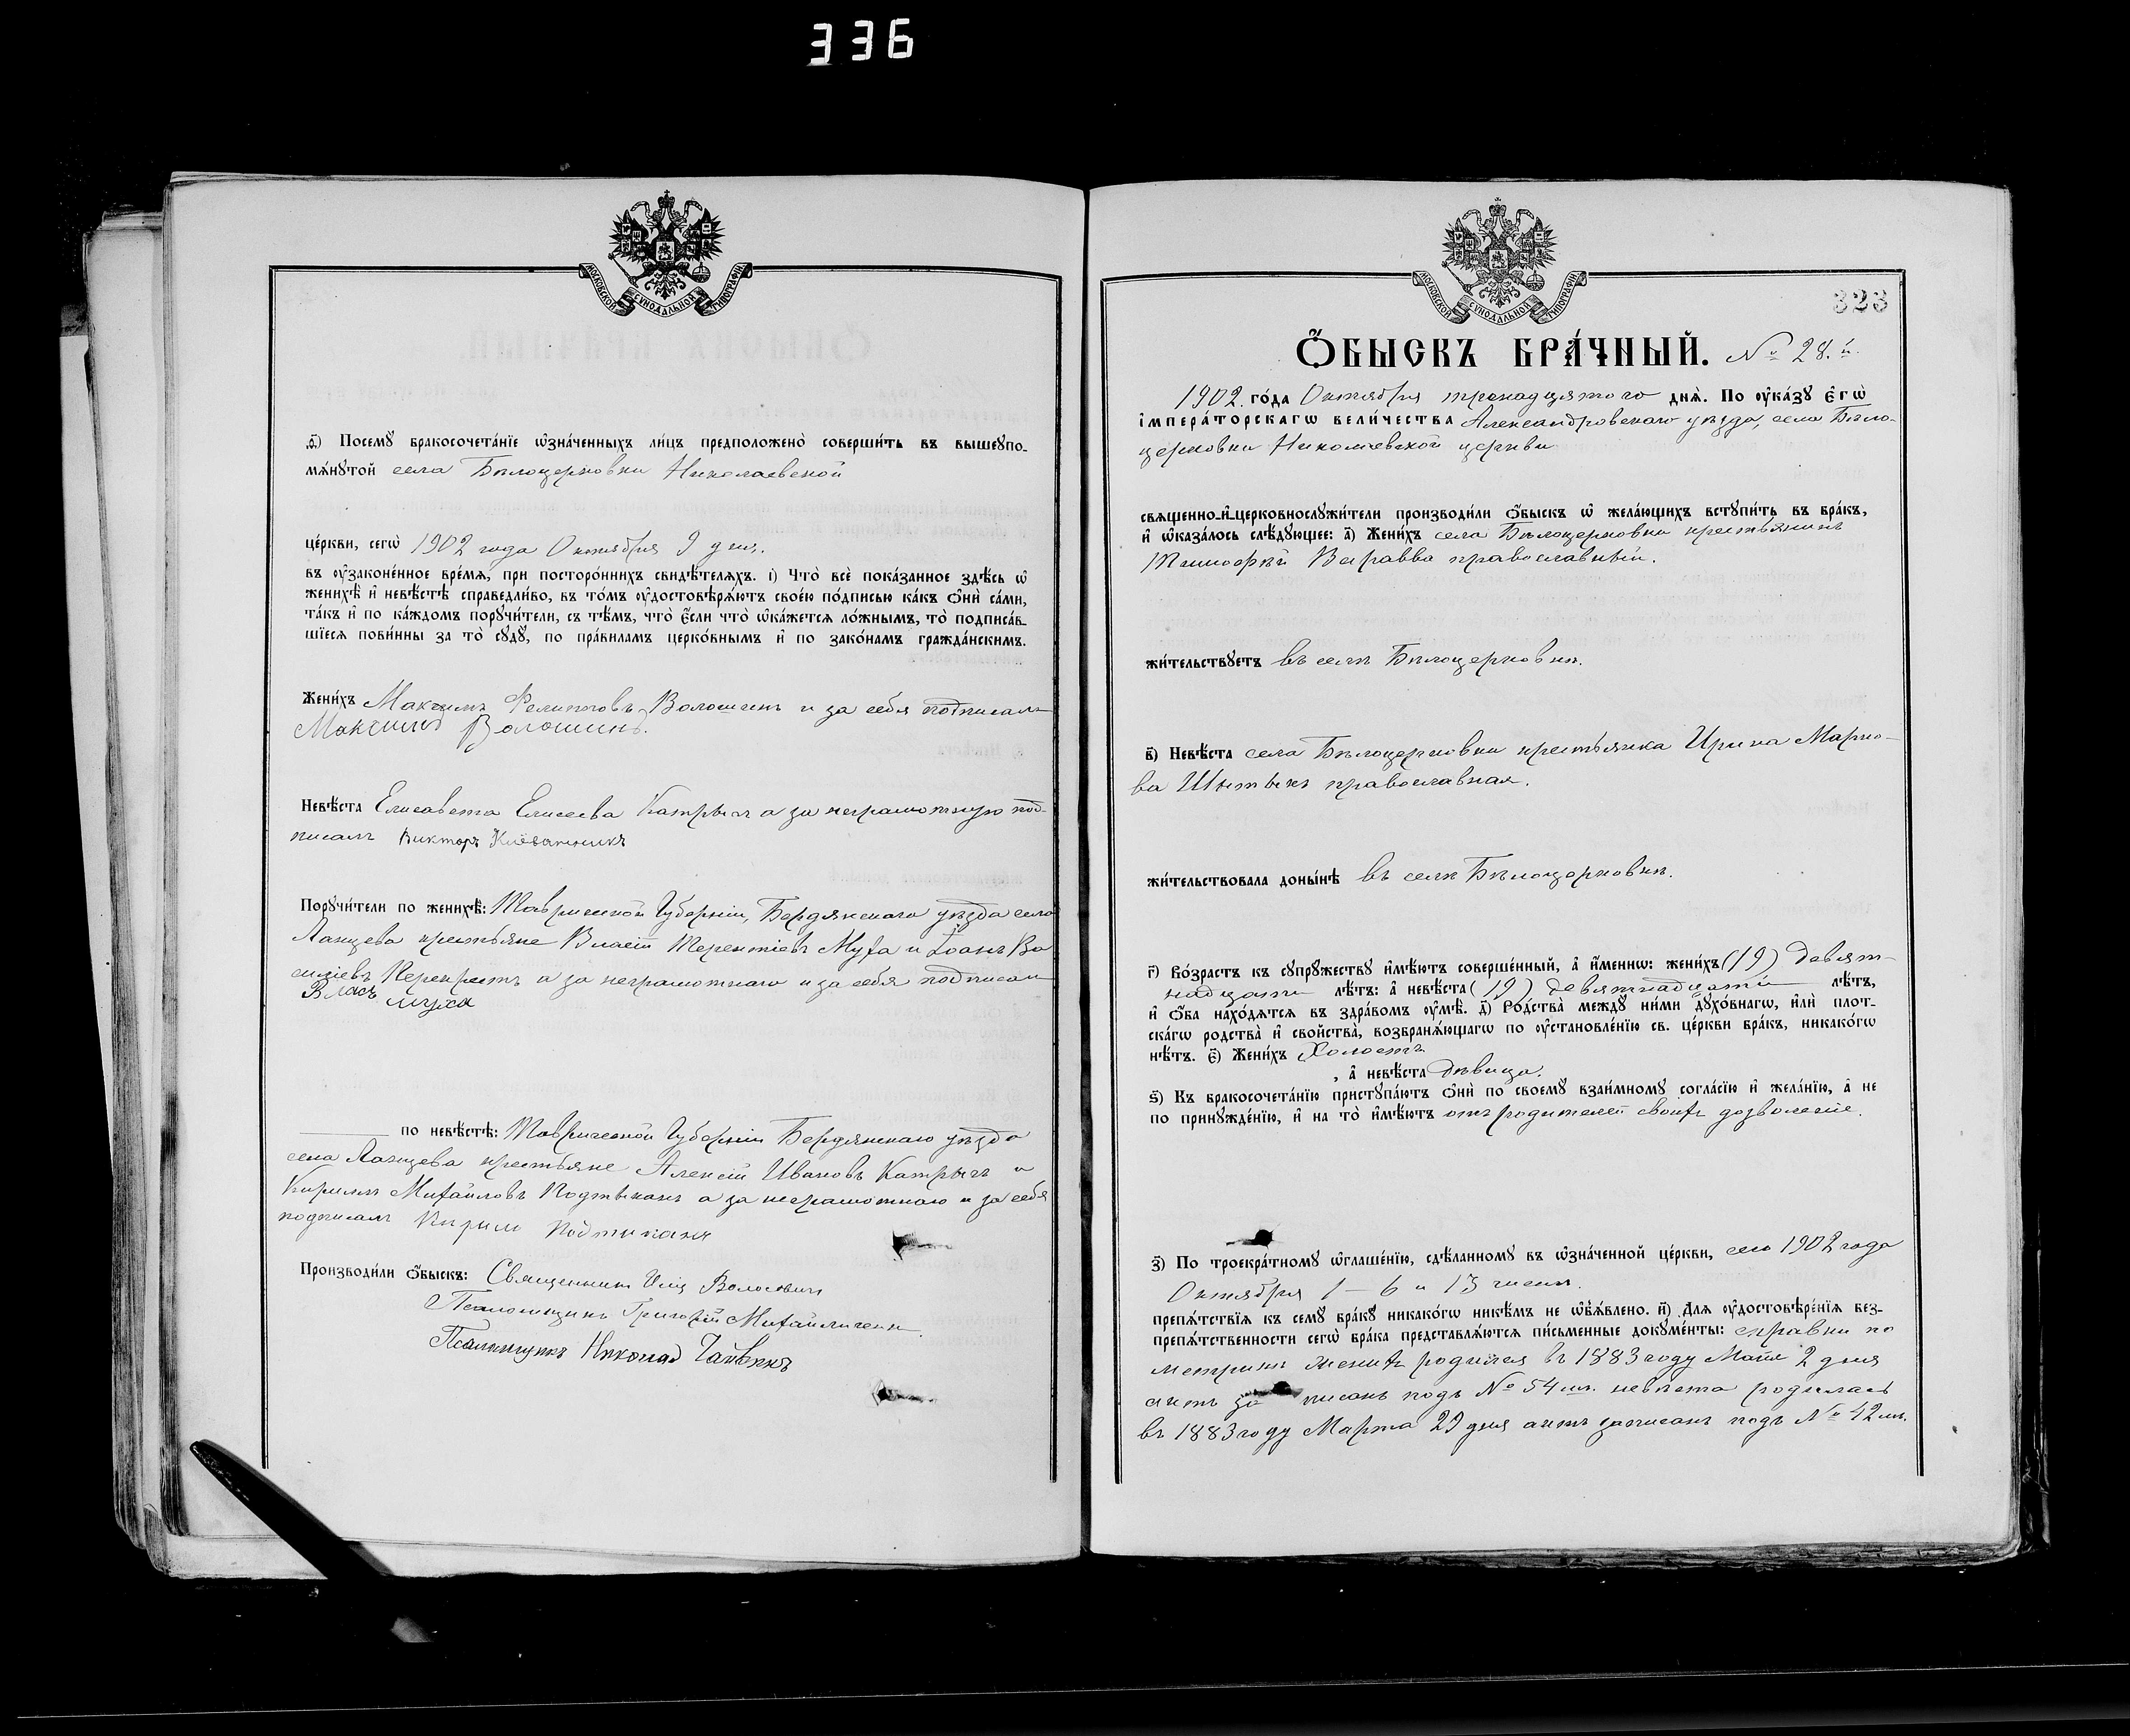 336
МОСКОВСКОЙ СѴНОДАЛЬНОЙ ТИПОГРАФІИ
ѳ҃) Посемꙋ бракосочета́нїе ѡ҆зна́ченныхъ ли́цъ предположено̀ соверши́ть въ вышеꙋпо-
мѧ́нꙋтой села Бѣлоцерковки Николаевской
це́ркви, сегѡ̀ 1902 года Октября 9 дня.
въ ᲂу҆законе́нное вре́мѧ, при посторо́ннихъ свидѣ́телѧхъ. і҃) Что̀ всѐ пока́занное здѣ́сь ѡ҆
женихѣ̀ и҆ невѣ́стѣ справедли́во, въ то́мъ ᲂу҆достовѣрѧ́ютъ свое́ю по́дписью ка́къ ѻ҆нѝ са́ми,
та́къ и҆ по ка́ждомъ порꙋчи́тели, съ тѣ́мъ, что̀ є҆́сли что̀ ѡ҆ка́жетсѧ ло́жнымъ, то̀ подписа́в-
шїесѧ пови́нны за то̀ сꙋдꙋ̀, по пра́виламъ церко́внымъ и҆ по зако́намъ гражда́нскимъ.
Жени́хъ Максимъ Филиповъ Волошинъ и за себя подписалъ
Максимъ Волошинъ.
Невѣ́ста Елисавета Елисеева Катрычъ а за неграмотную под-
писалъ Викторъ
Порꙋчи́тели по женихѣ̀: Таврической Губерніи, Бердянскаго уѣзда села
крестьяне Власій Терентіевъ Муха и Іоанъ Ва
силіевъ Перехрестъ а за неграмотнаго и за себя подписалъ
Власъ муха
по невѣ́стѣ: Таврической Губерніи Бердянскаго уѣзда
села крестьяне Алексій Ивановъ Катрычъ и
Кирилъ Михайловъ Подтыканъ а за неграмотнаго и за себя
подписалъ Кирило Подтиканъ
Производи́ли ѻ҆́быскъ: Священникъ Волосевичъ
Псаломщикъ Григорій Михайличенко
Псаломщикъ
МОСКОВСКОЙ СѴНОДАЛЬНОЙ ТИПОГРАФІИ
323
Ѻ҆́БЫСКЪ БРА́ЧНЫЙ. № 28.й
1902. го́да Октября тринадцятого днѧ̀. По ᲂу҆ка́зꙋ Є҆гѡ̀
І҆мпера́торскагѡ вели́чества Александровскаго уѣзда, села Бѣло-
церковки Николаевской церкви
свѧщенно-и҆-церковнослꙋжи́тели производи́ли ѻ҆́быскъ ѡ҆ жела́ющихъ встꙋпи́ть въ бра́къ,
и҆ ѡ҆каза́лось слѣ́дꙋющее: а҃) Жени́хъ села Бѣлоцерковки крестьянинъ
Тимофѣй Варавва православный.
жи́тельствꙋетъ въ селѣ Бѣлоцерковкѣ.
в҃) Невѣ́ста села Бѣлоцерковки крестьянка Ирина Марко-
ва православная.
жи́тельствовала доны́нѣ въ селѣ Бѣлоцерковкѣ.
г҃) Во́зрастъ къ сꙋпрꙋ́жествꙋ и҆мѣ́ютъ соверше́нный, а҆̀ и҆́меннѡ: жени́хъ (19) девят-
надцати лѣ́тъ: а҆̀ невѣ́ста (19) девятнадцати лѣ́тъ,
и҆ ѻ҆́ба нахо́дѧтсѧ въ здра́вомъ ᲂу҆мѣ̀. д҃) Ро́дства̀ междꙋ̀ ни́ми дꙋхо́внагѡ, и҆лѝ плот-
ска́гѡ родства̀ и҆ сво́йства̀, возбранѧ́ющагѡ по ᲂу҆становле́нїю св. це́ркви бра́къ, никако́гѡ
нѣ́тъ. є҃) Жени́хъ Холостъ
, а҆̀ невѣ́ста дѣвица.
ѕ҃) Къ бракосочета́нїю пристꙋпа́ютъ ѻ҆нѝ по своемꙋ̀ взаи́мномꙋ согла́сїю и҆ жела́нїю, а҆̀ не
по принꙋжде́нїю, и҆ на то̀ и҆мѣ́ютъ отъ родителей своихъ дозволеніе.
з҃) По троекра́тномꙋ ѡ҆глаше́нїю, сдѣ́ланномꙋ въ ѡ҆зна́ченной це́ркви, сего 1902 года
Октября 1 – 6 и 13 чиселъ.
препѧ́тствїѧ къ семꙋ̀ бра́кꙋ никако́гѡ никѣ́мъ не ѡ҆б̾ѧ́влено. и҃) Длѧ ᲂу҆достовѣре́нїѧ без-
препѧ́тственности сегѡ̀ бра́ка представлѧ́ютсѧ пи́сьменные докꙋме́нты: справки по
метрикѣ женихъ родился въ 1883 году Маія 2 дня
актъ записанъ подъ № 54 мъ. невѣста родилась
въ 1883 году Марта 29 дня актъ записанъ подъ № 42 мъ.